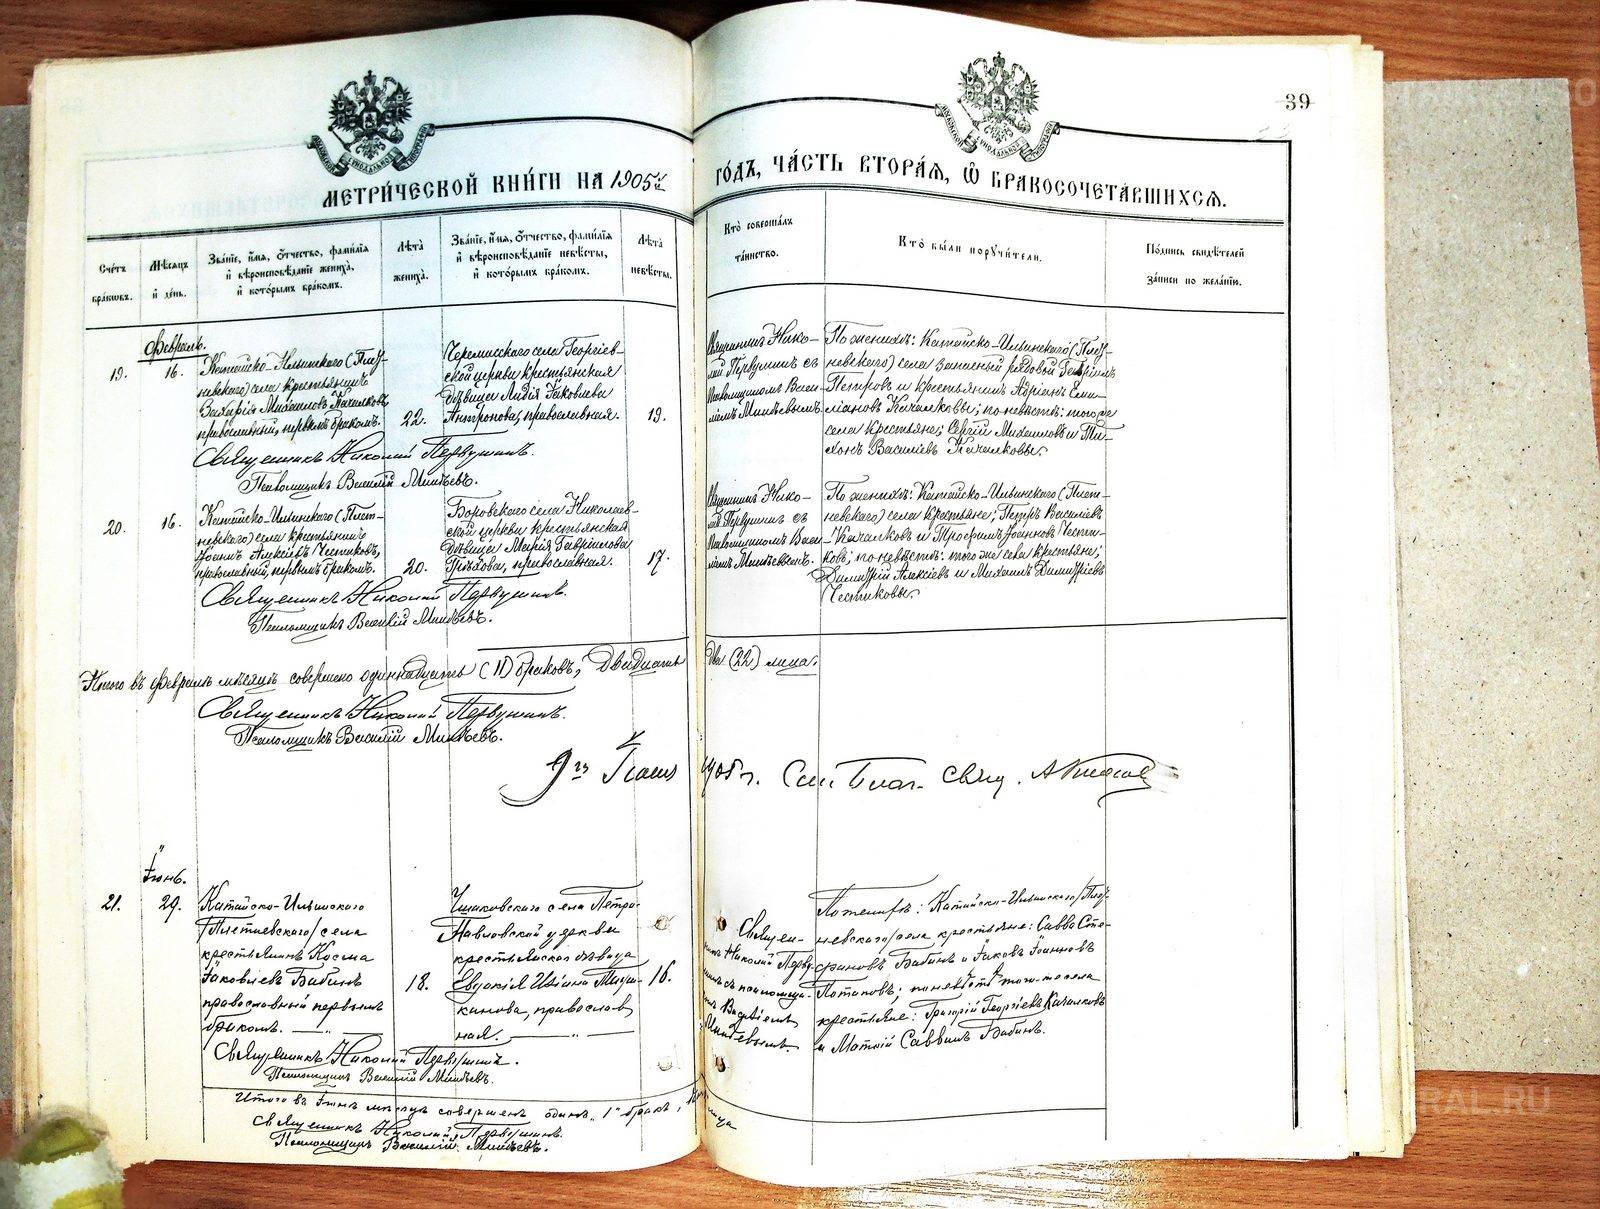 39
МЕТРИЧЕСКОЙ КНИГИ НА 1905й
ГОДЪ, ЧАСТЬ ВТОРАЯ, Ѡ БРАКОСОЧЕТАВШИХСЯ.
Счетъ браковъ.
Мѣсяцъ и день.
Званіе, имя, отчество, фамилія и вѣроисповѣданіе жениха, и которымъ бракомъ.
Лѣта жениха.
Званіе, имя, отчество, фамилія и вѣроисповѣданіе невѣсты, и которымъ бракомъ.
Лѣта невѣсты.
Кто совершалъ таинство.
Кто были поручители.
Подпись свидѣтелей записи по желанію.
Февраль.
19.
16.
Катайско-Ильинскаго (Плет-
невскаго) села крестьянинъ
Захарія Михаиловъ Качалковъ
православный, первымъ бракомъ.
22.
Черемисскаго села Георгіев-
ской церкви крестьянская
дѣвица Лидія Іаковлева
Антронова, православная.
19.
Священникъ Нико-
лай Первушинъ съ
Псаломщикомъ Васи-
ліемъ Минѣевымъ.
По женихѣ: Катайско-Ильинскаго (Плет-
невскаго) села запасный рядовой Гавріилъ
Петровъ и крестьянинъ Адріанъ Еми-
ліановъ Качалковы; по невѣстѣ: того же
села крестьяне; Сергій Михаиловъ и Ти-
хонъ Василіевъ Качалковы.
Священникъ Николай Первушинъ.
Псаломщикъ Василій Минѣевъ.
20.
16.
Катайско-Ильинскаго (Плет-
невскаго) села крестьянинъ
Іоаннъ Алексіевъ Честиковъ,
православный, первымъ бракомъ.
20.
Боровскаго села Николаев-
ской церкви крестьянская
дѣвица Марія Гавріилова
Грѣхова, православная.
17.
Священникъ Нико-
лай Первушинъ съ
Псаломщикомъ Васи-
ліемъ Минѣевымъ.
По женихѣ: Катайско-Ильинскаго (Плет-
невскаго) села крестьяне; Петръ Василіевъ
Качалковъ и Трофимъ Іоанновъ Чести-
ковъ; по невѣстѣ: того же села крестьяне;
Димитрій Алексіевъ и Михаилъ Димитріевъ
Честиковы.
Священникъ Николай Первушинъ.
Псаломщикъ Василій Минѣевъ.
Итого въ февралѣ мѣсяцѣ совершено одиннадцать (11) браковъ, двадцать два (22) лица.
Священникъ Николай Первушинъ.
Псаломщикъ Василій Минѣевъ.
1905 г. Благ. Свящ.
Іюнь.
21.
29.
Катайско-Ильинскаго
/Плетневскаго/ села
крестьянинъ Косма
Іаковлевъ Бабинъ
православный первымъ
бракомъ.
18.
села Петро-
Павловской церкви
крестьянская дѣвица
Евдокія
православ
ная.
16.
Священ-
никъ Николай Перву-
шинъ съ псаломщи-
комъ Василіемъ
Минѣевымъ.
По женихѣ: Катайско-Ильинскаго /Плет-
невскаго/ села крестьяне: Савва Сте-
фановъ Бабинъ и Іаковъ Іоанновъ
Потаповъ; по невѣстѣ того-же села
крестьяне: Григорій Георгіевъ Качалковъ
и Матѳій Саввинъ Бабинъ.
Священникъ Николай Первушинъ.
Псаломщикъ Василій Минѣевъ.
Итого въ Іюнѣ мѣсяцѣ совершенъ одинъ "1" бракъ, лица
Священникъ Николай Первушинъ.
Псаломщикъ Василій Минѣевъ.